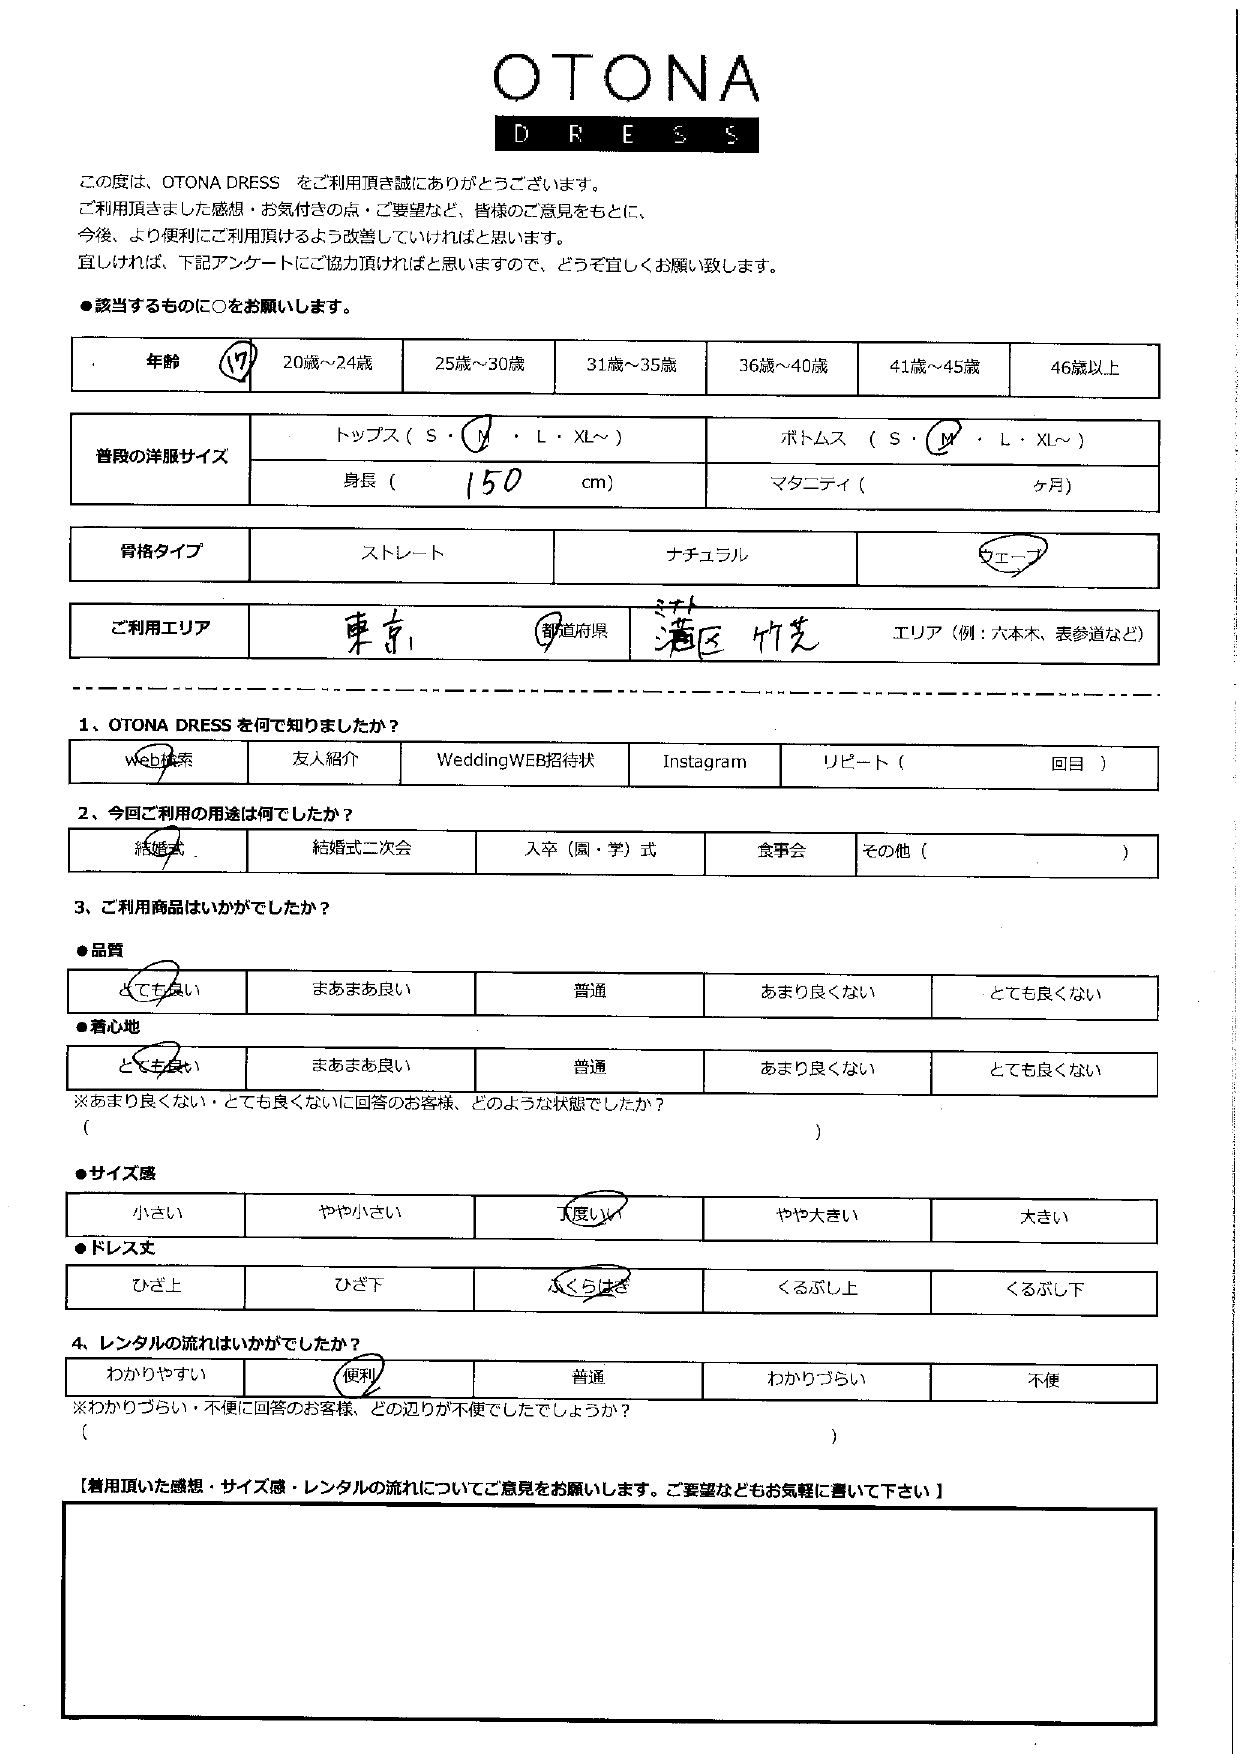 OTONA
DRESS
この度は、OTONA DRESS をご利用頂き誠にありがとうございます。
ご利用頂きました感想・お気付きの点・ご要望など、皆様のご意見をもとに、
今後、より便利にご利用頂けるよう改善していければと思います。
宜しければ、下記アンケートにご協力頂ければと思いますので、どうぞ宜しくお願い致します。
●該当するものに○をお願いします。
年齢 17 20歳～24歳 25歳～30歳 31歳～35歳 36歳～40歳 41歳～45歳 46歳以上
普段の洋服サイズ トップス ( S ・ M ・ L ・ XL～ ) ボトムス ( S ・ M ・ L ・ XL～ )
身長 ( 150 cm) マタニティ ( ヶ月)
骨格タイプ ストレート ナチュラル ウェーブ
ミナト
ご利用エリア 東京 都道府県 港区 竹芝 エリア（例：六本木、表参道など）
1、OTONA DRESS を何で知りましたか？
Web検索 友人紹介 WeddingWEB招待状 Instagram リピート ( 回目 )
2、今回ご利用の用途は何でしたか？
結婚式 結婚式二次会 入卒（園・学）式 食事会 その他 ( )
3、ご利用商品はいかがでしたか？
●品質
とても良い まあまあ良い 普通 あまり良くない とても良くない
●着心地
とても良い まあまあ良い 普通 あまり良くない とても良くない
※あまり良くない・とても良くないに回答のお客様、どのような状態でしたか？
( )
●サイズ感
小さい やや小さい 丁度いい やや大きい 大きい
●ドレス丈
ひざ上 ひざ下 ふくらはぎ くるぶし上 くるぶし下
4、レンタルの流れはいかがでしたか？
わかりやすい 便利 普通 わかりづらい 不便
※わかりづらい・不便に回答のお客様、どの辺りが不便でしたでしょうか？
( )
【着用頂いた感想・サイズ感・レンタルの流れについてご意見をお願いします。ご要望などもお気軽に書いて下さい 】